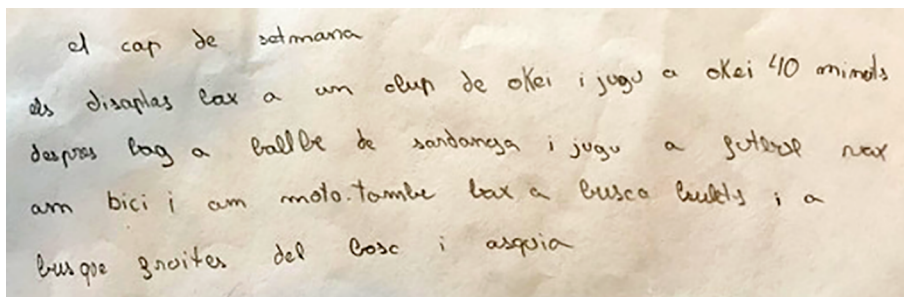 el cap de setmana
els disaptas bax a un clup de okei i jugu a okei 40 minuts
despres bag a ballbe de sardanya i jugu a futerse vax
am bici i am moto. tambe bax a busca bulets i a
busque fruites del bosc i asquia